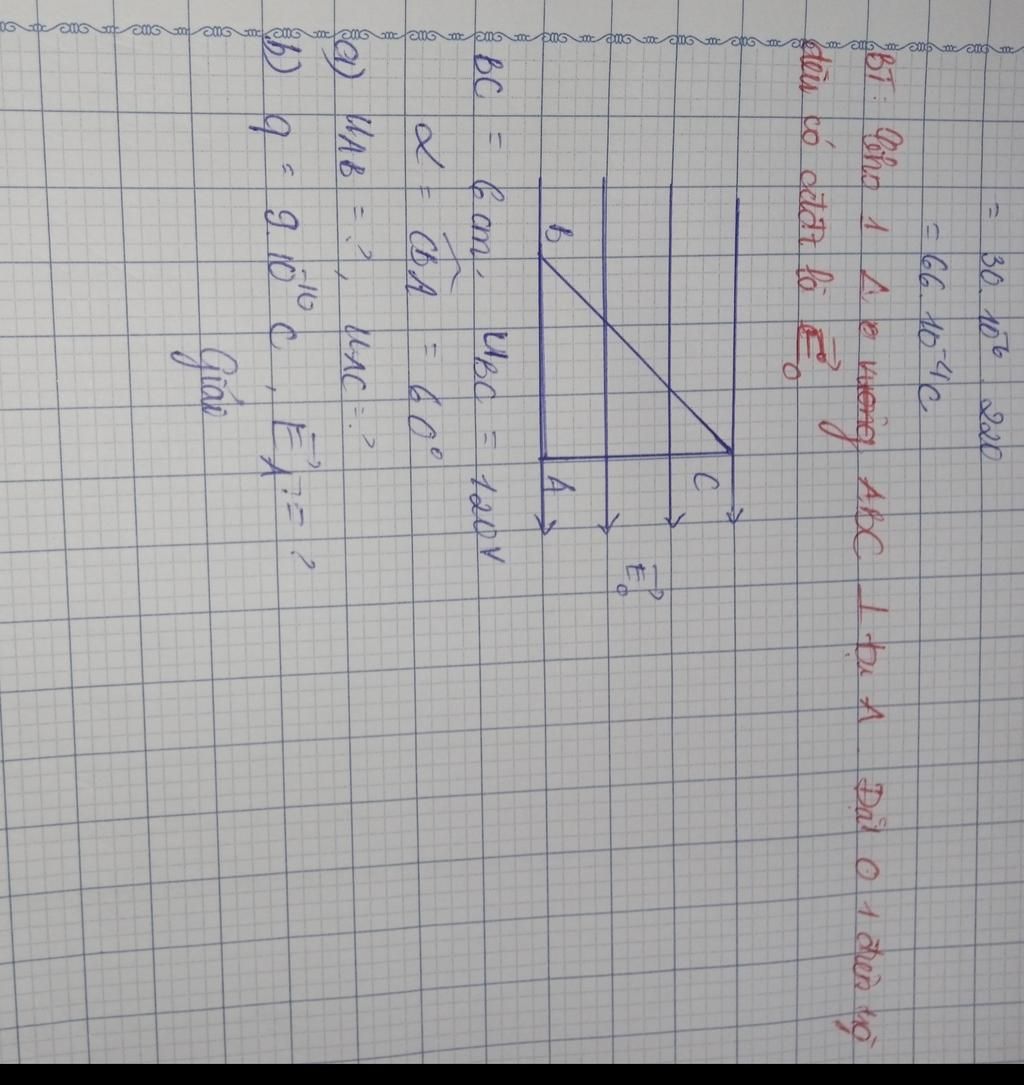 = 30.10⁻⁶.220
= 66.10⁻⁴C
BT: Cho 1 Δ vuông ABC ⊥ tại A Đặt 1 điện
đều có là E⃗₀
C
B A
E⃗₀
BC = 6cm, UBC = 120V
α = CBA = 60°
a) UAB = ?, UAC = ?
b) q = 9.10⁻¹⁰ C, E⃗A = ?
Giải